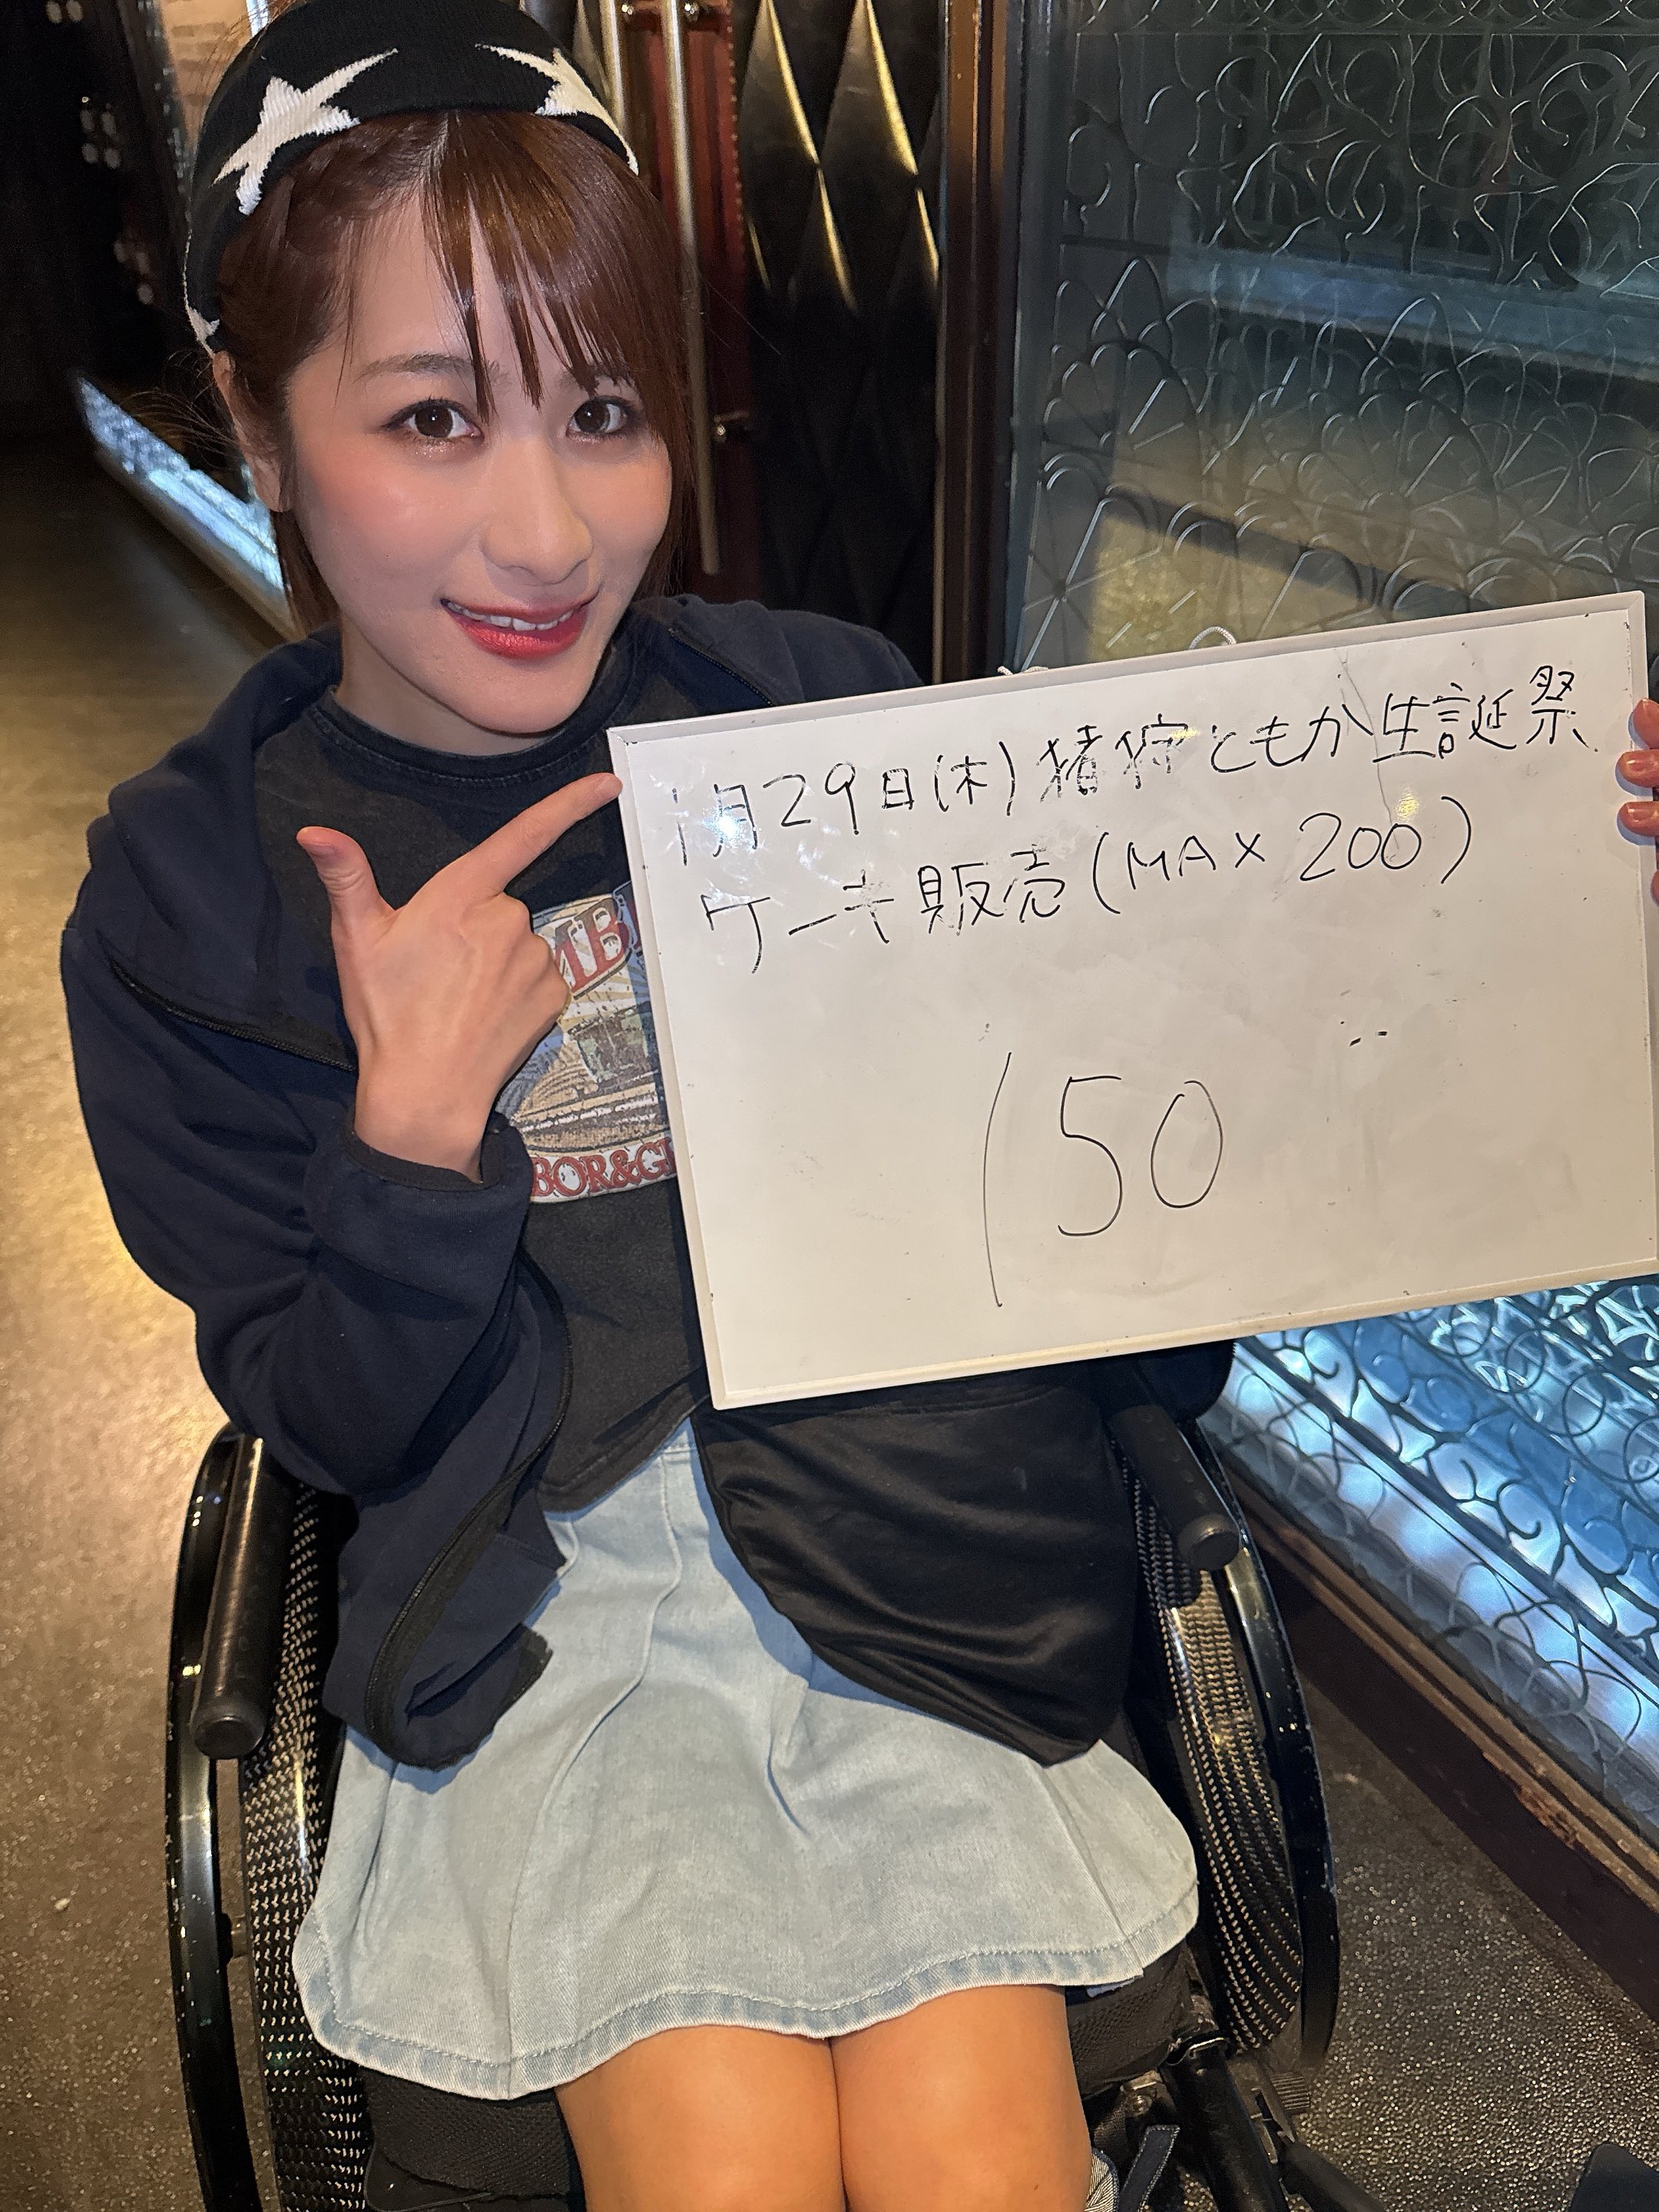 1月29日(木)猪狩ともか生誕祭
ケーキ販売(MAX 200)
150
BOR&G